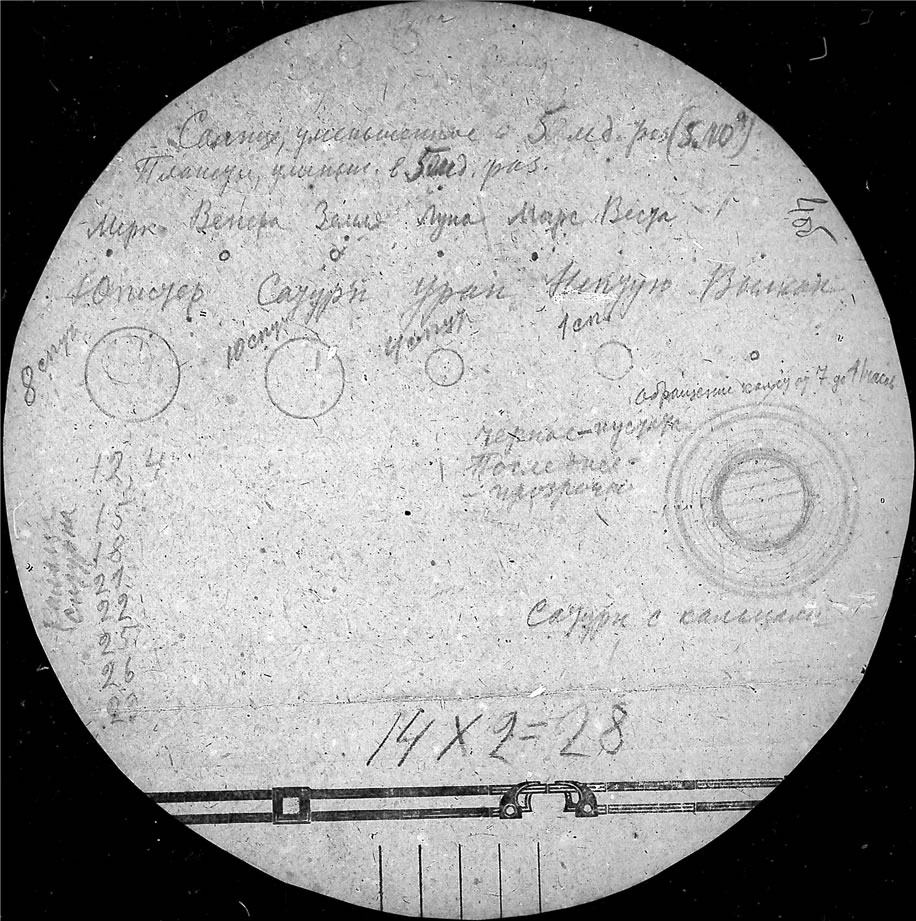 Луна
Солнце, уменьшенное в 5 мд. раз (5.10⁹)
Планеты, уменьш. в 5 мд. раз.
Мерк. Венера Земля Луна Марс Веста
Юпитер Сатурн Уран Нептун Вулкан
8 спут. 10 спут. 4 спут. 1 сп.
обращение кольц от 7 до 11 часов
черное – пустота
После днее –
– прозрачн
12, 4
15
18
21
22
25
26
Сатурн с кольцами
14 × 2 = 28